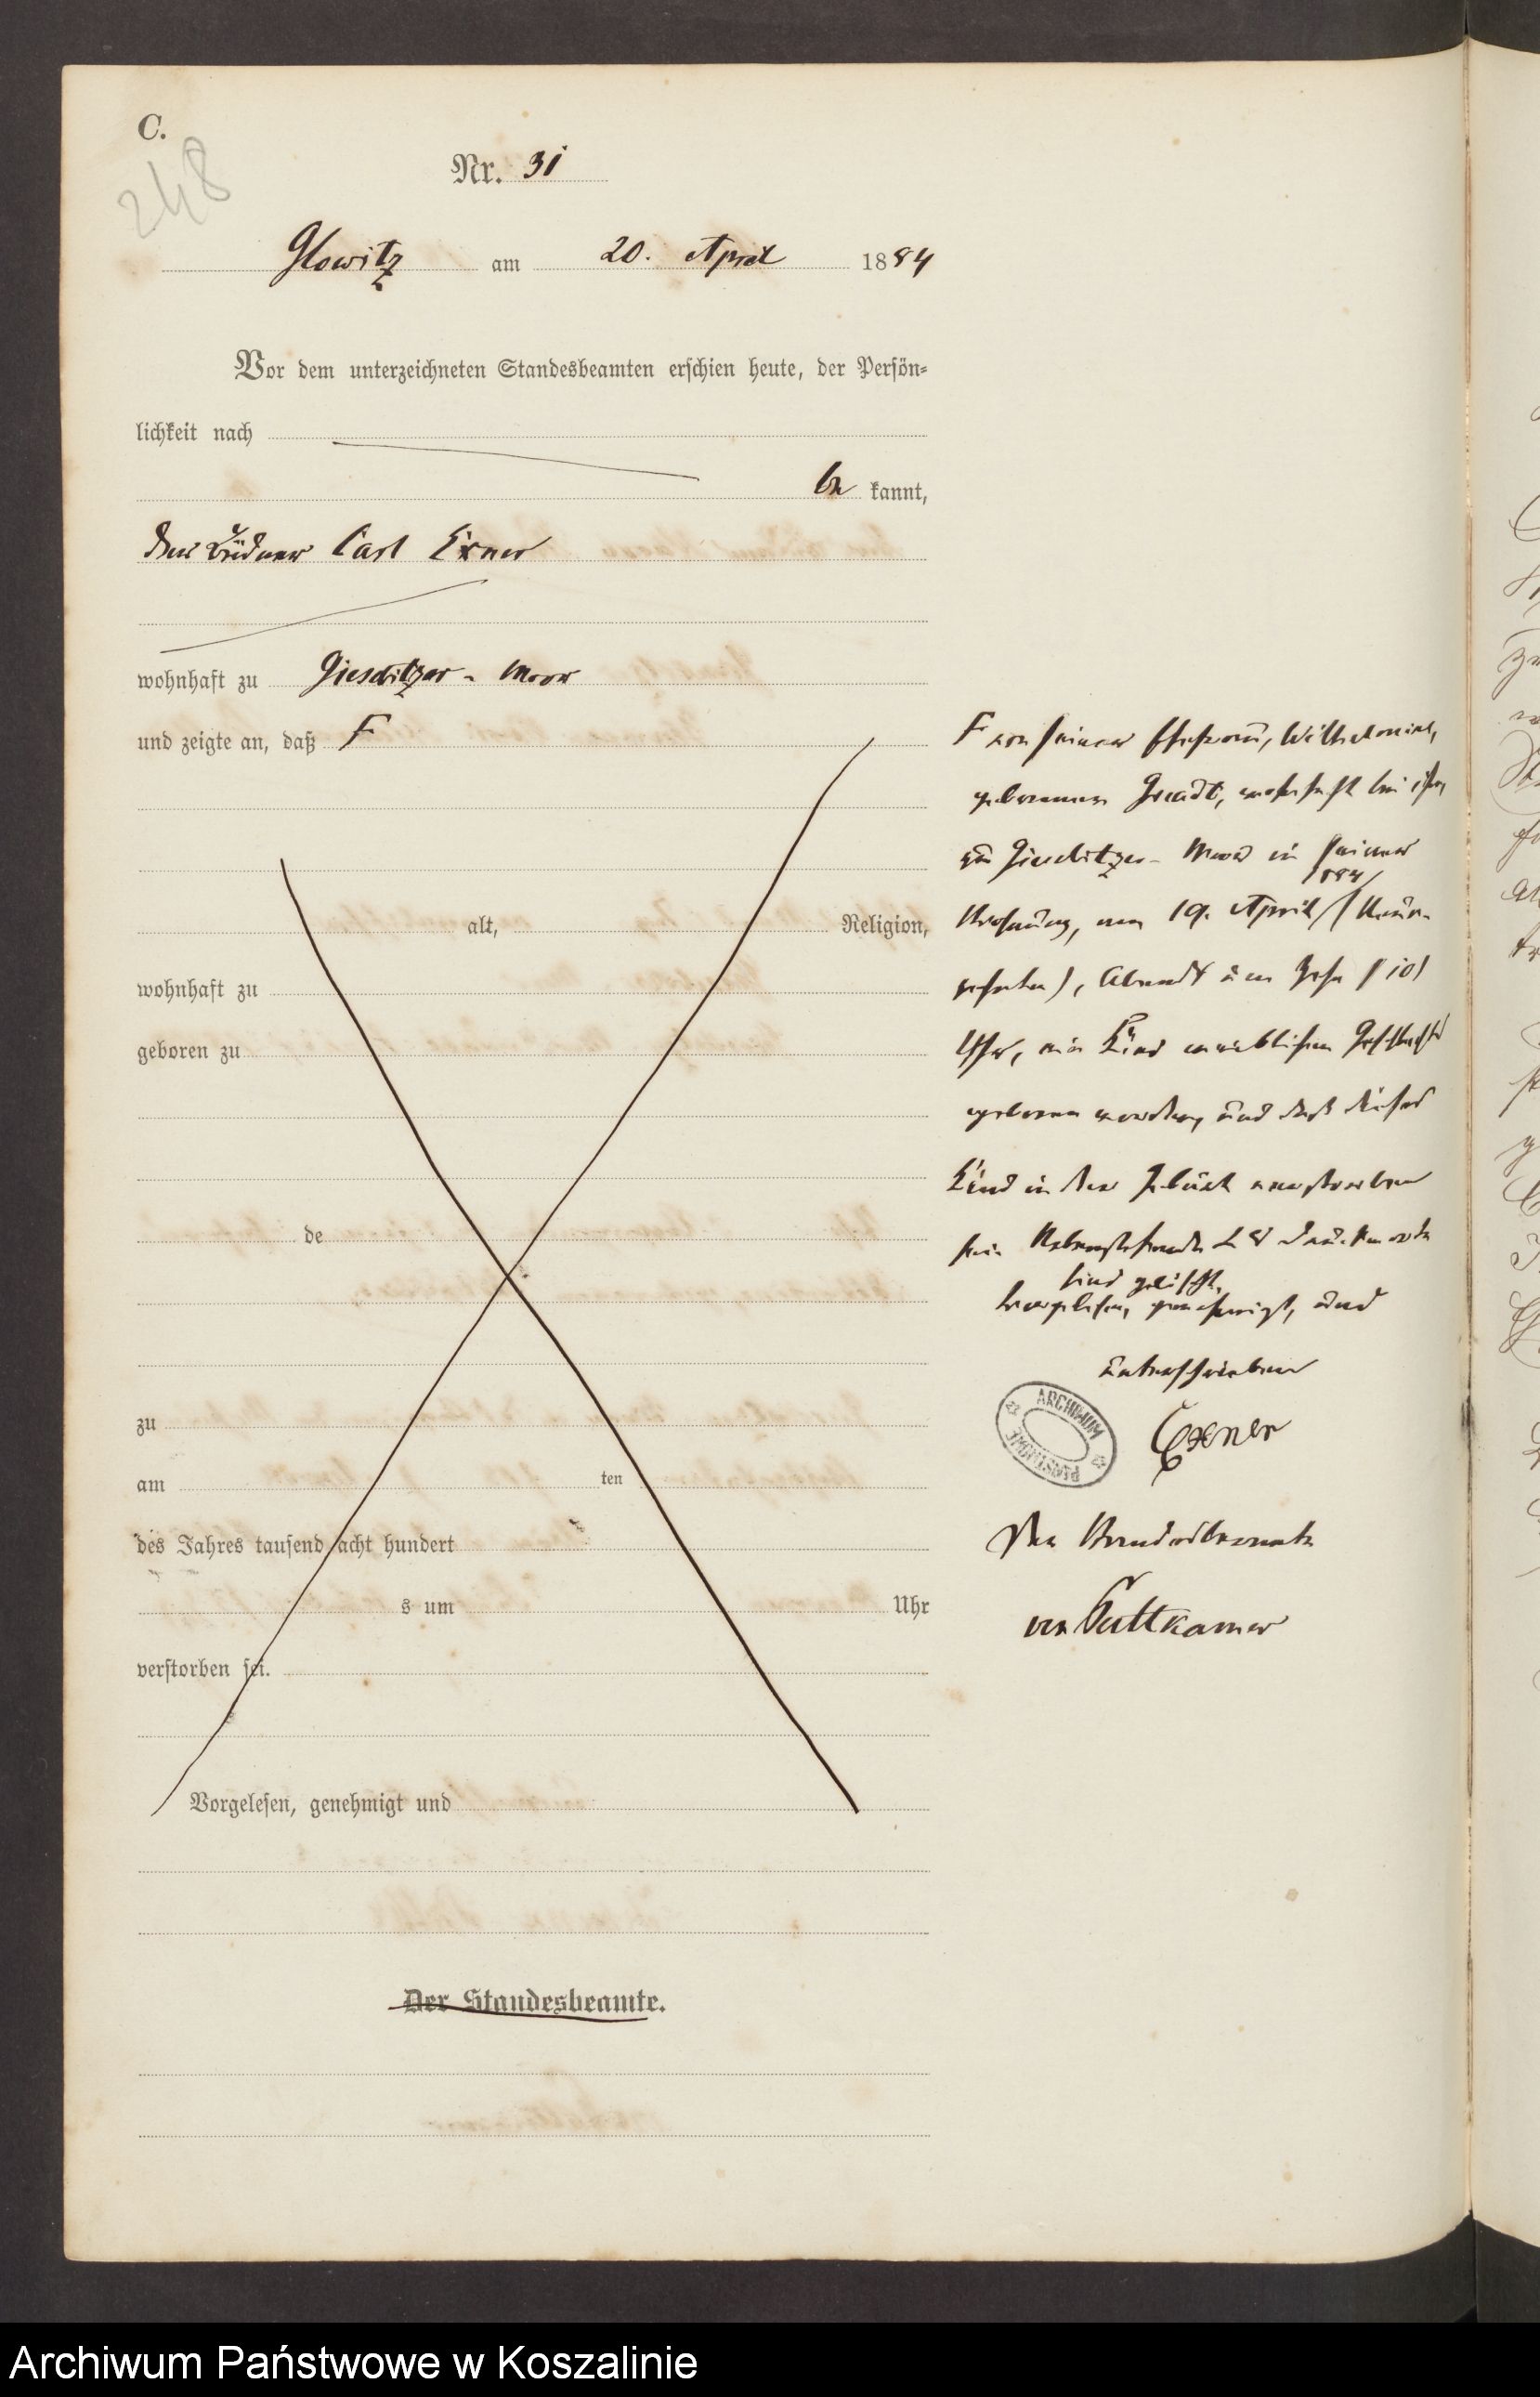 C.
248
Nr. 31
Glowitz am 20. April 1884
Vor dem unterzeichneten Standesbeamten erschien heute, der Persön-
lichkeit nach
be kannt,
der Büdner Carl Exner
wohnhaft zu Giesebitzer - Moor
und zeigte an, daß F
alt, Religion,
wohnhaft zu
geboren zu
de
zu
am ten
des Jahres tausend acht hundert
s um Uhr
verstorben sei.
Vorgelesen, genehmigt und
Der Standesbeamte.
F von seiner Ehefrau, Wilhelmine,
geborenen, wohnhaft bei ihm
zu Giesebitzer - Moor in seiner
1884
Wohnung, am 19. April (Neun-
zehnten), Abends um Zehn (10)
Uhr, ein Kind weiblichen Geschlechts
geboren worden, und daß dieses
Kind in der Geburt verstorben
sei. Nebenstehende Druckworte
sind gelöscht.
Vorgelesen, genehmigt, und
unterschrieben
ARCHIWUM PAŃSTWOWE
Exner
Der Standesbeamte
von Puttkamer
Archiwum Państwowe w Koszalinie